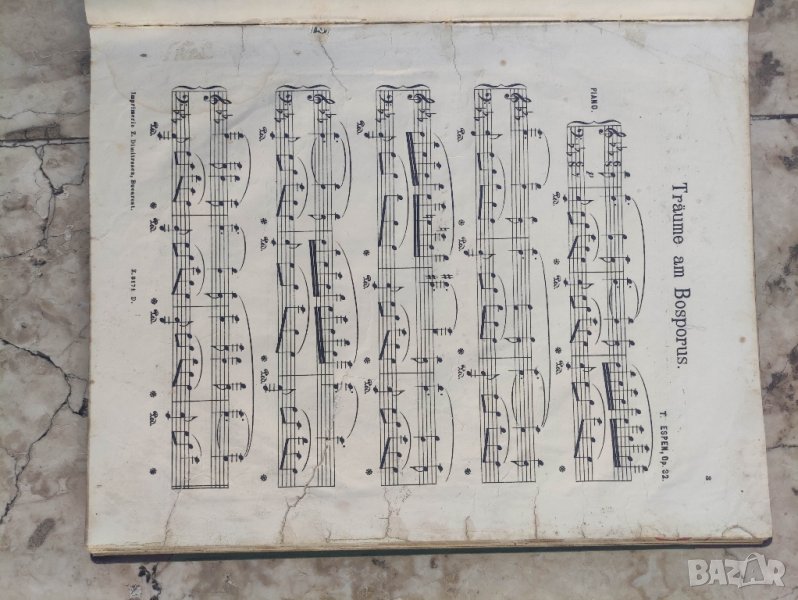 3
Träume am Bosporus.
T. ESPEN, Op. 32.
PIANO.
p
Imprimerie Z. Dimitrescu, Bucarest.
Z. 8171 D.
BAZAR